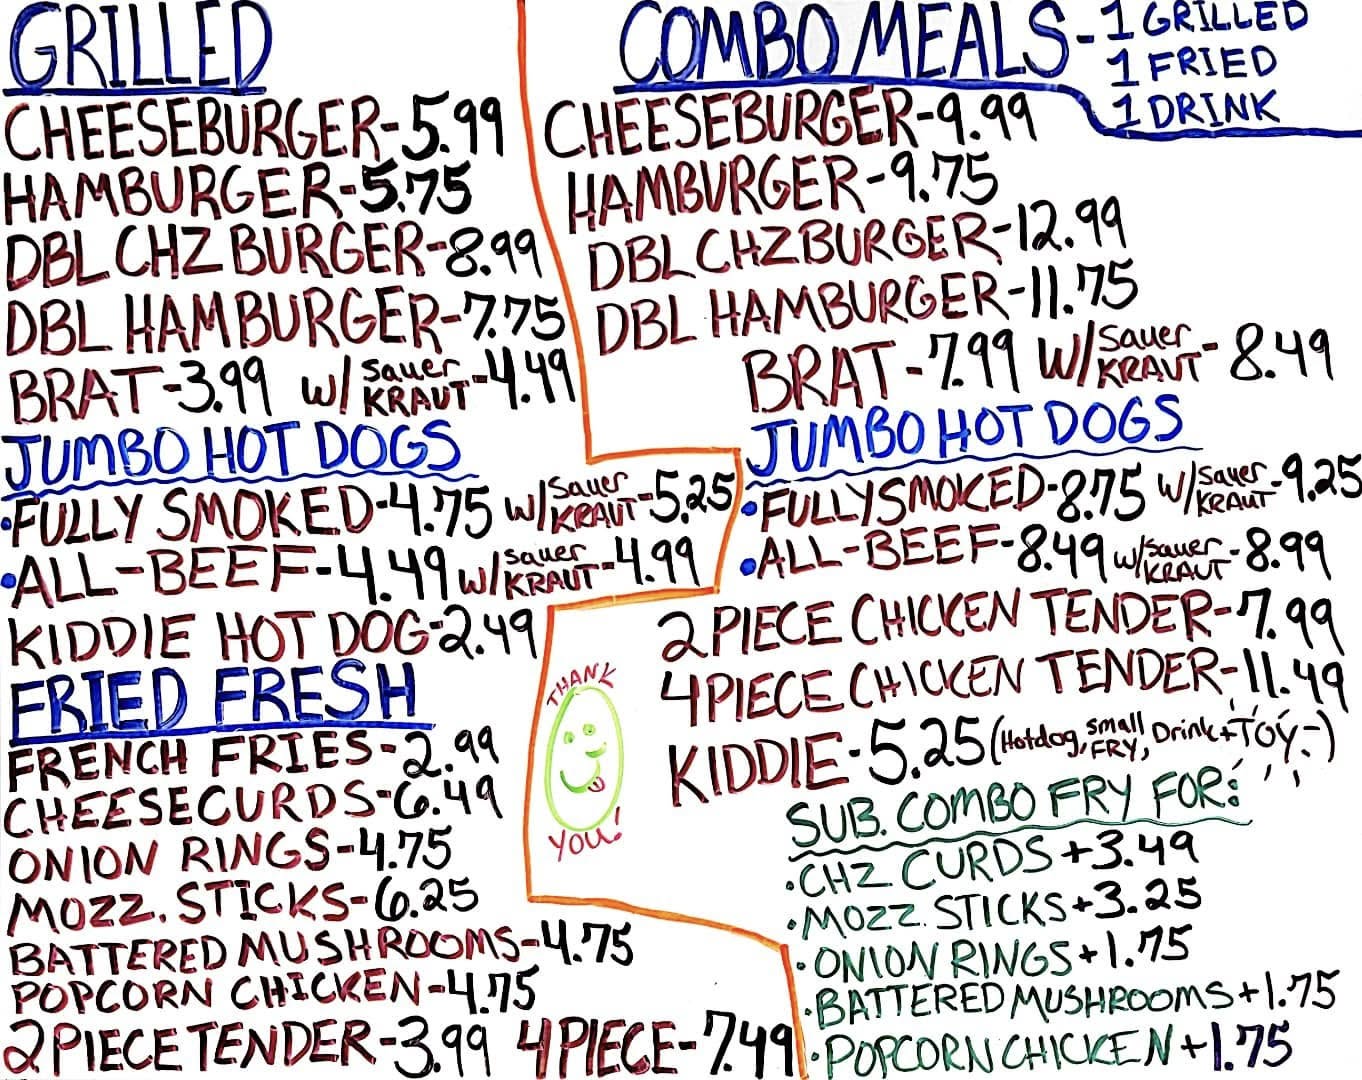 GRILLED
CHEESEBURGER-5.99
HAMBURGER-5.75
DBL CHZ BURGER-8.99
DBL HAMBURGER-7.75
BRAT-3.99 W/ Sauer KRAUT-4.49
JUMBO HOT DOGS
•FULLY SMOKED-4.75 W/ Sauer KRAUT-5.25
•ALL-BEEF-4.49 W/ Sauer KRAUT-4.99
KIDDIE HOT DOG-2.49
FRIED FRESH
FRENCH FRIES-2.99
CHEESECURDS-6.49
ONION RINGS-4.75
MOZZ. STICKS-6.25
BATTERED MUSHROOMS-4.75
POPCORN CHICKEN-4.75
2 PIECE TENDER-3.99 4 PIECE-7.49
THANK
YOU!
COMBO MEALS-1 GRILLED
1 FRIED
1 DRINK
CHEESEBURGER-9.99
HAMBURGER-9.75
DBL CHZ BURGER-12.99
DBL HAMBURGER-11.75
BRAT-7.99 W/ Sauer KRAUT-8.49
JUMBO HOT DOGS
•FULLY SMOKED-8.75 W/ Sauer KRAUT-9.25
•ALL-BEEF-8.49 W/ Sauer KRAUT-8.99
2 PIECE CHICKEN TENDER-7.99
4 PIECE CHICKEN TENDER-11.49
KIDDIE-5.25 (Hotdog, small FRY, Drink + TOY :-)
SUB. COMBO FRY FOR:
•CHZ CURDS +3.49
•MOZZ. STICKS +3.25
•ONION RINGS +1.75
•BATTERED MUSHROOMS +1.75
•POPCORN CHICKEN +1.75